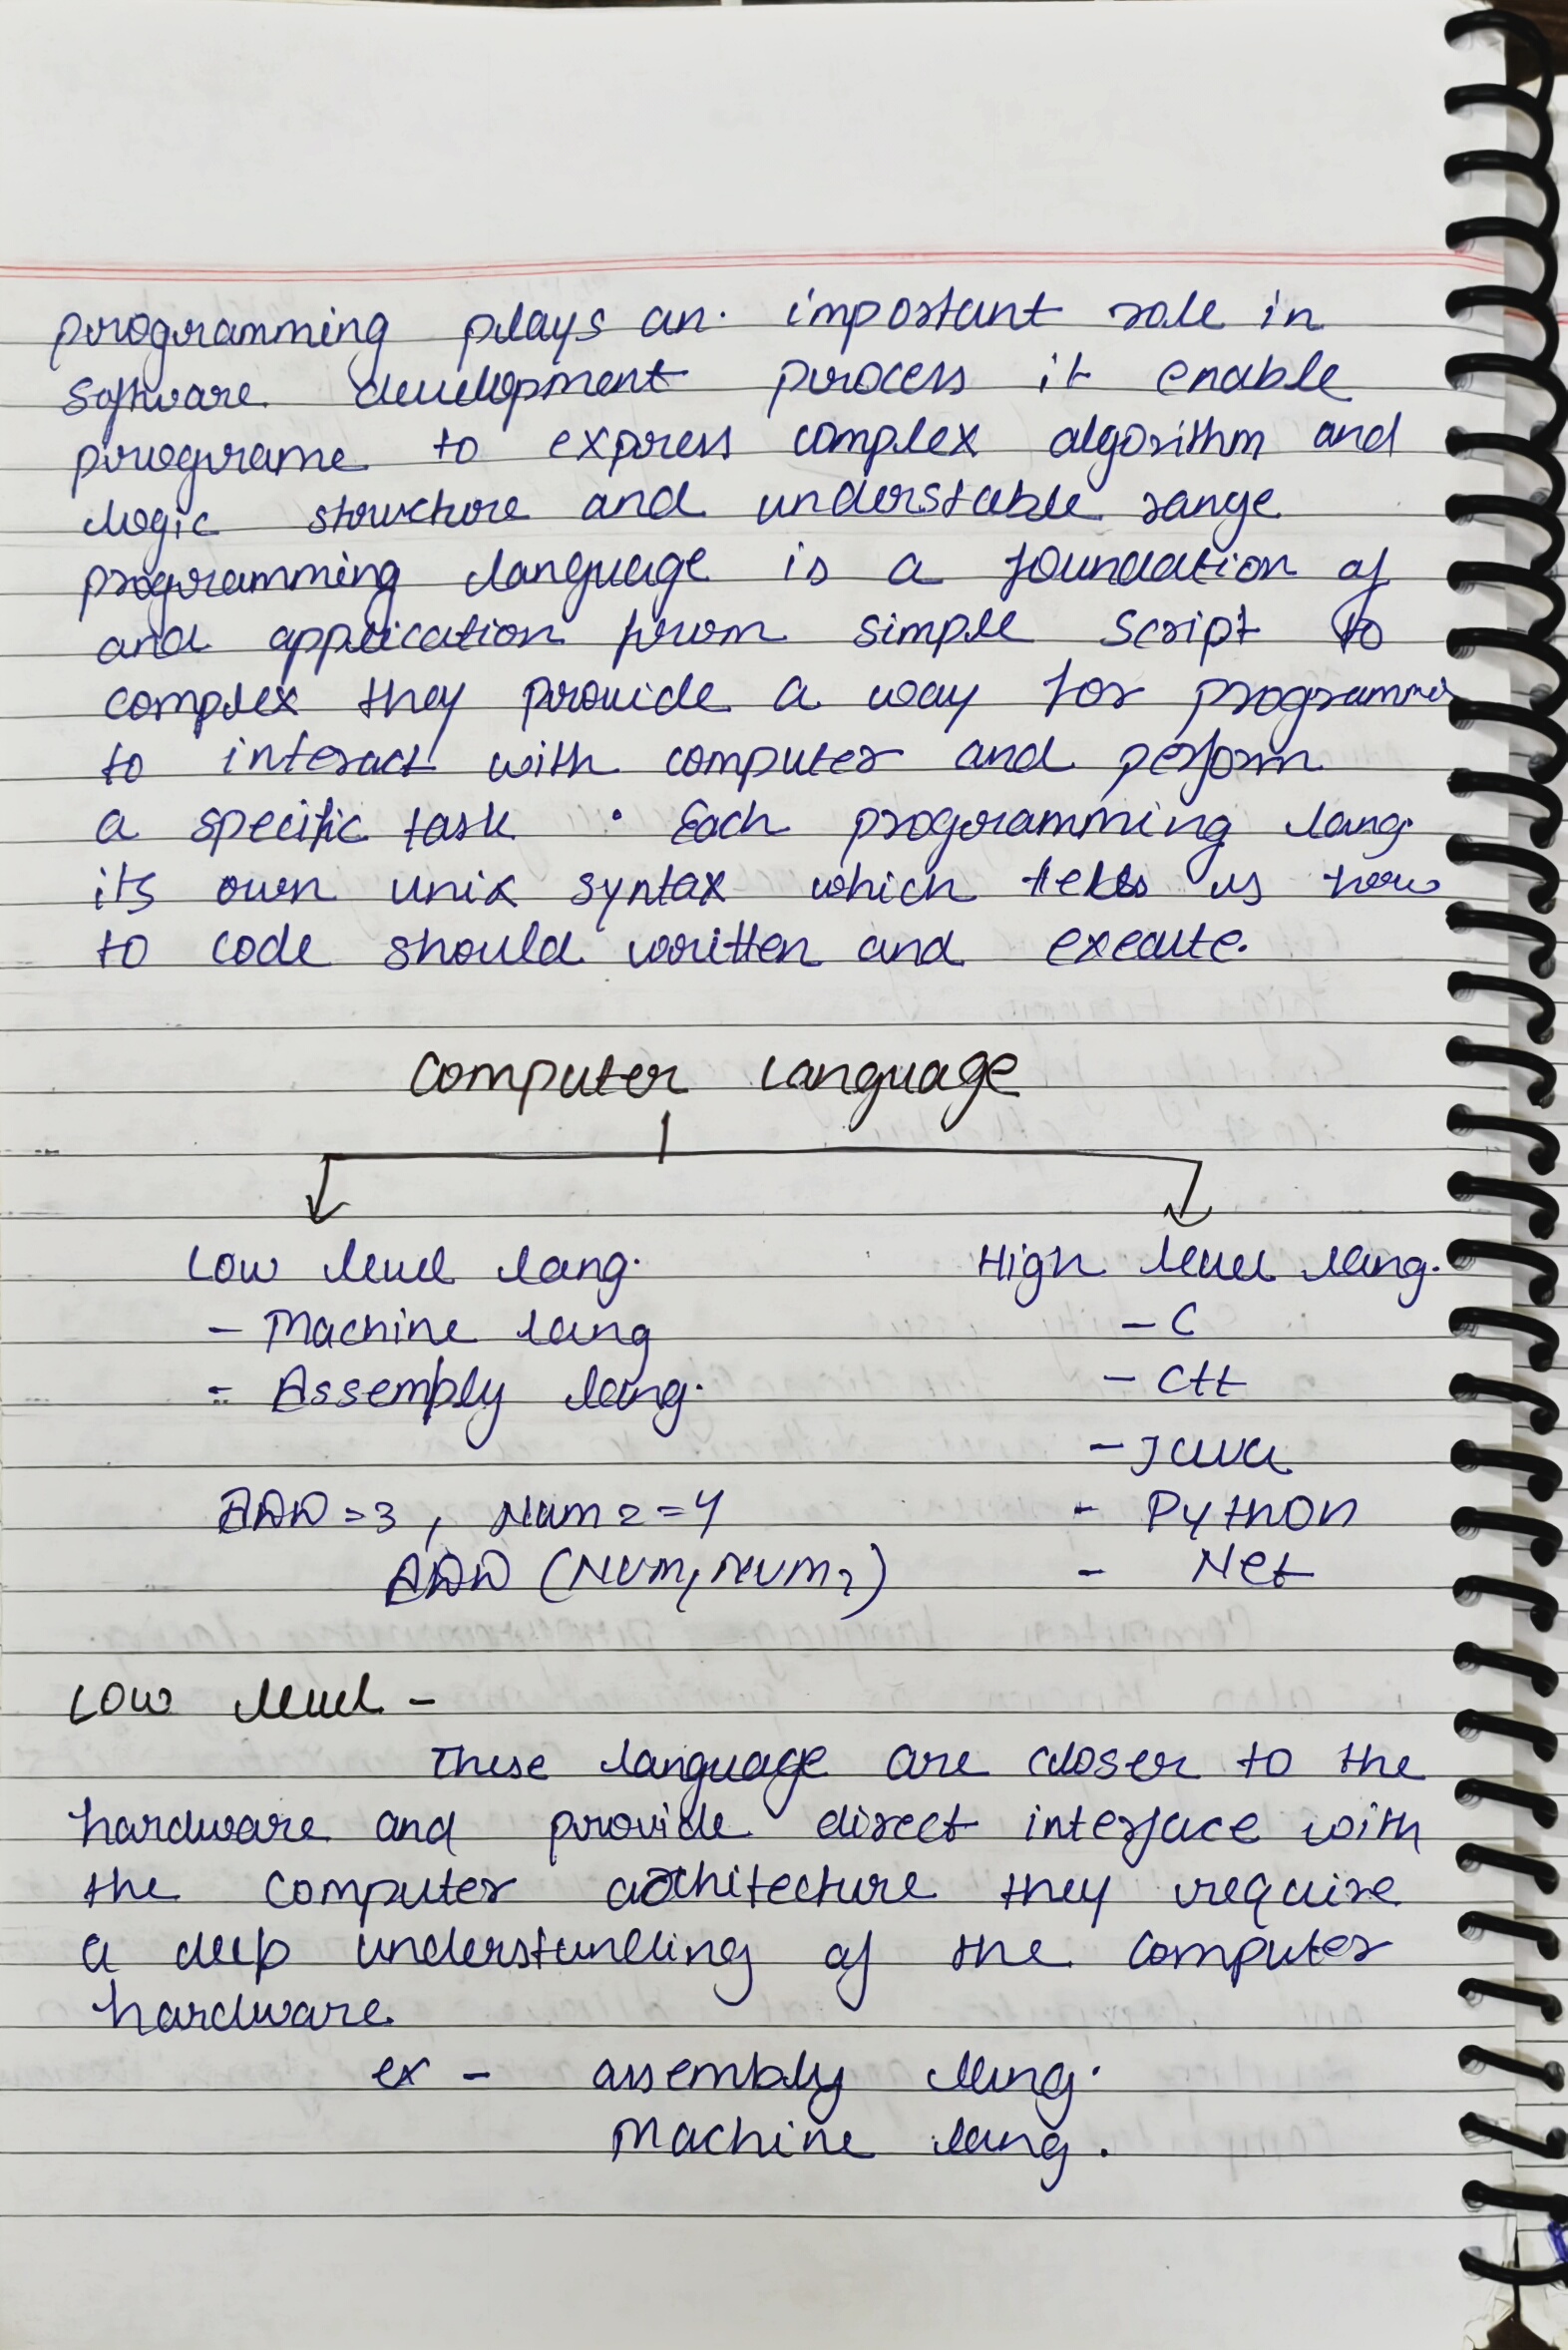 programming plays an. important role in
Software development process it enable
programe to express complex algorithm and
logic structure and understable range
programming language is a foundation of
and application from simple script to
complex they provide a way for programmer
to interact with computer and perform
a specific task . Each programming lang.
its own unix syntax which tells us how
to code should written and execute.
Computer Language
Low level lang. High level lang.
- Machine lang - C
- Assembly lang. - C++
- Java
ADD = 3 , Num 2 = 4 - Python
ADD (NUM1, NUM2) - Net
Low level -
These language are closer to the
hardware and provide direct interface with
the computer architecture they require
a deep understanding of the computer
hardware
ex - assembly lang.
Machine lang.